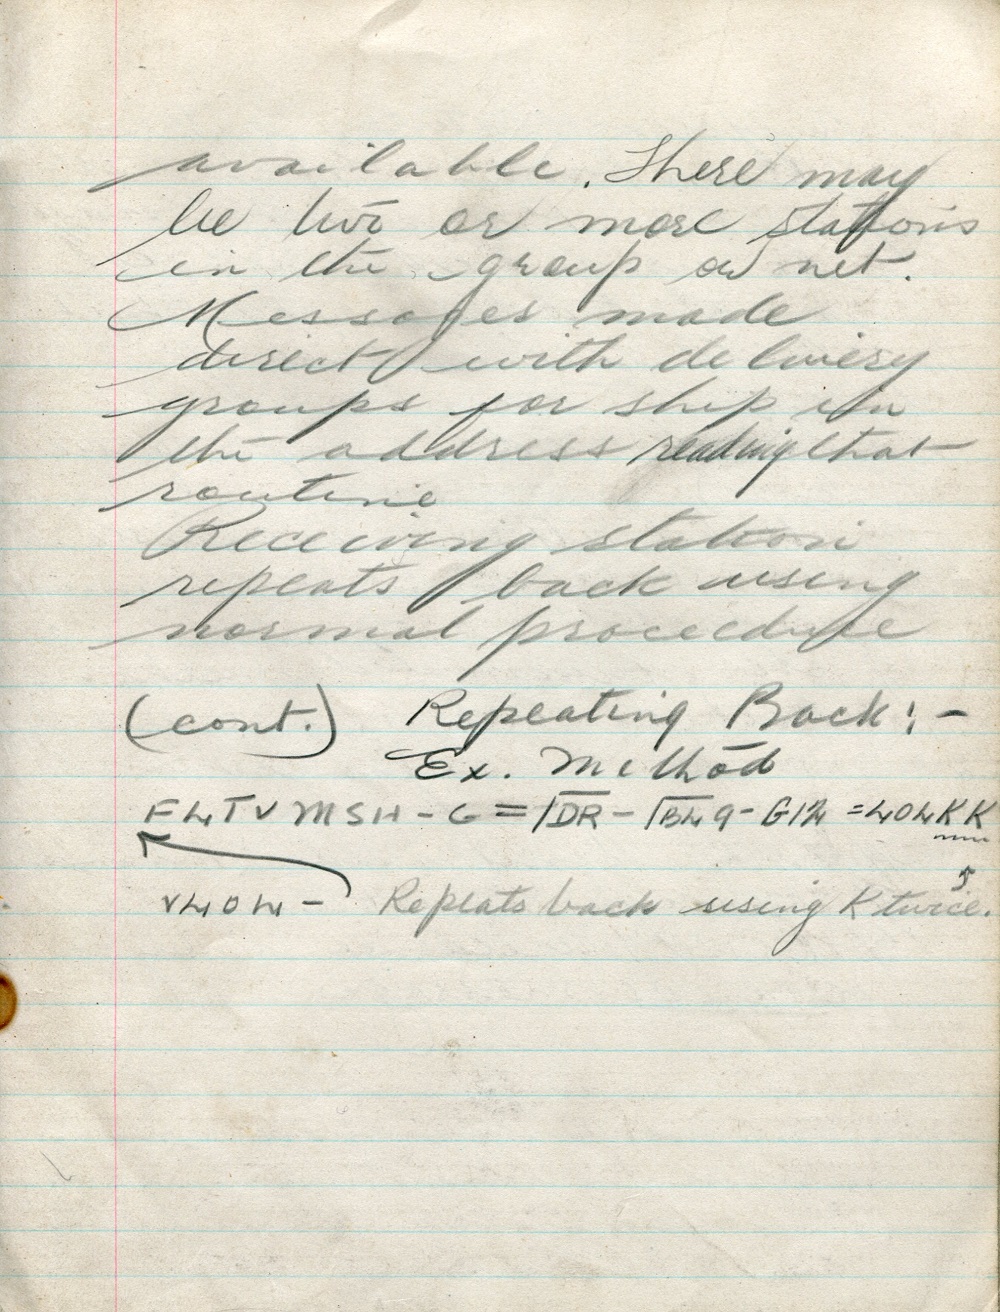 available. There may
be two or more stations
in the group or net.
Messages made
direct with delivery
groups for ship in
the address reading that
routine
Receiving station
repeats back using
normal proceedure
(cont.) Repeating Back:-
Ex. Method
F4TV MSH - G = DR - B49 - G12 = 404KK
V404 - Repeats back using K twice.